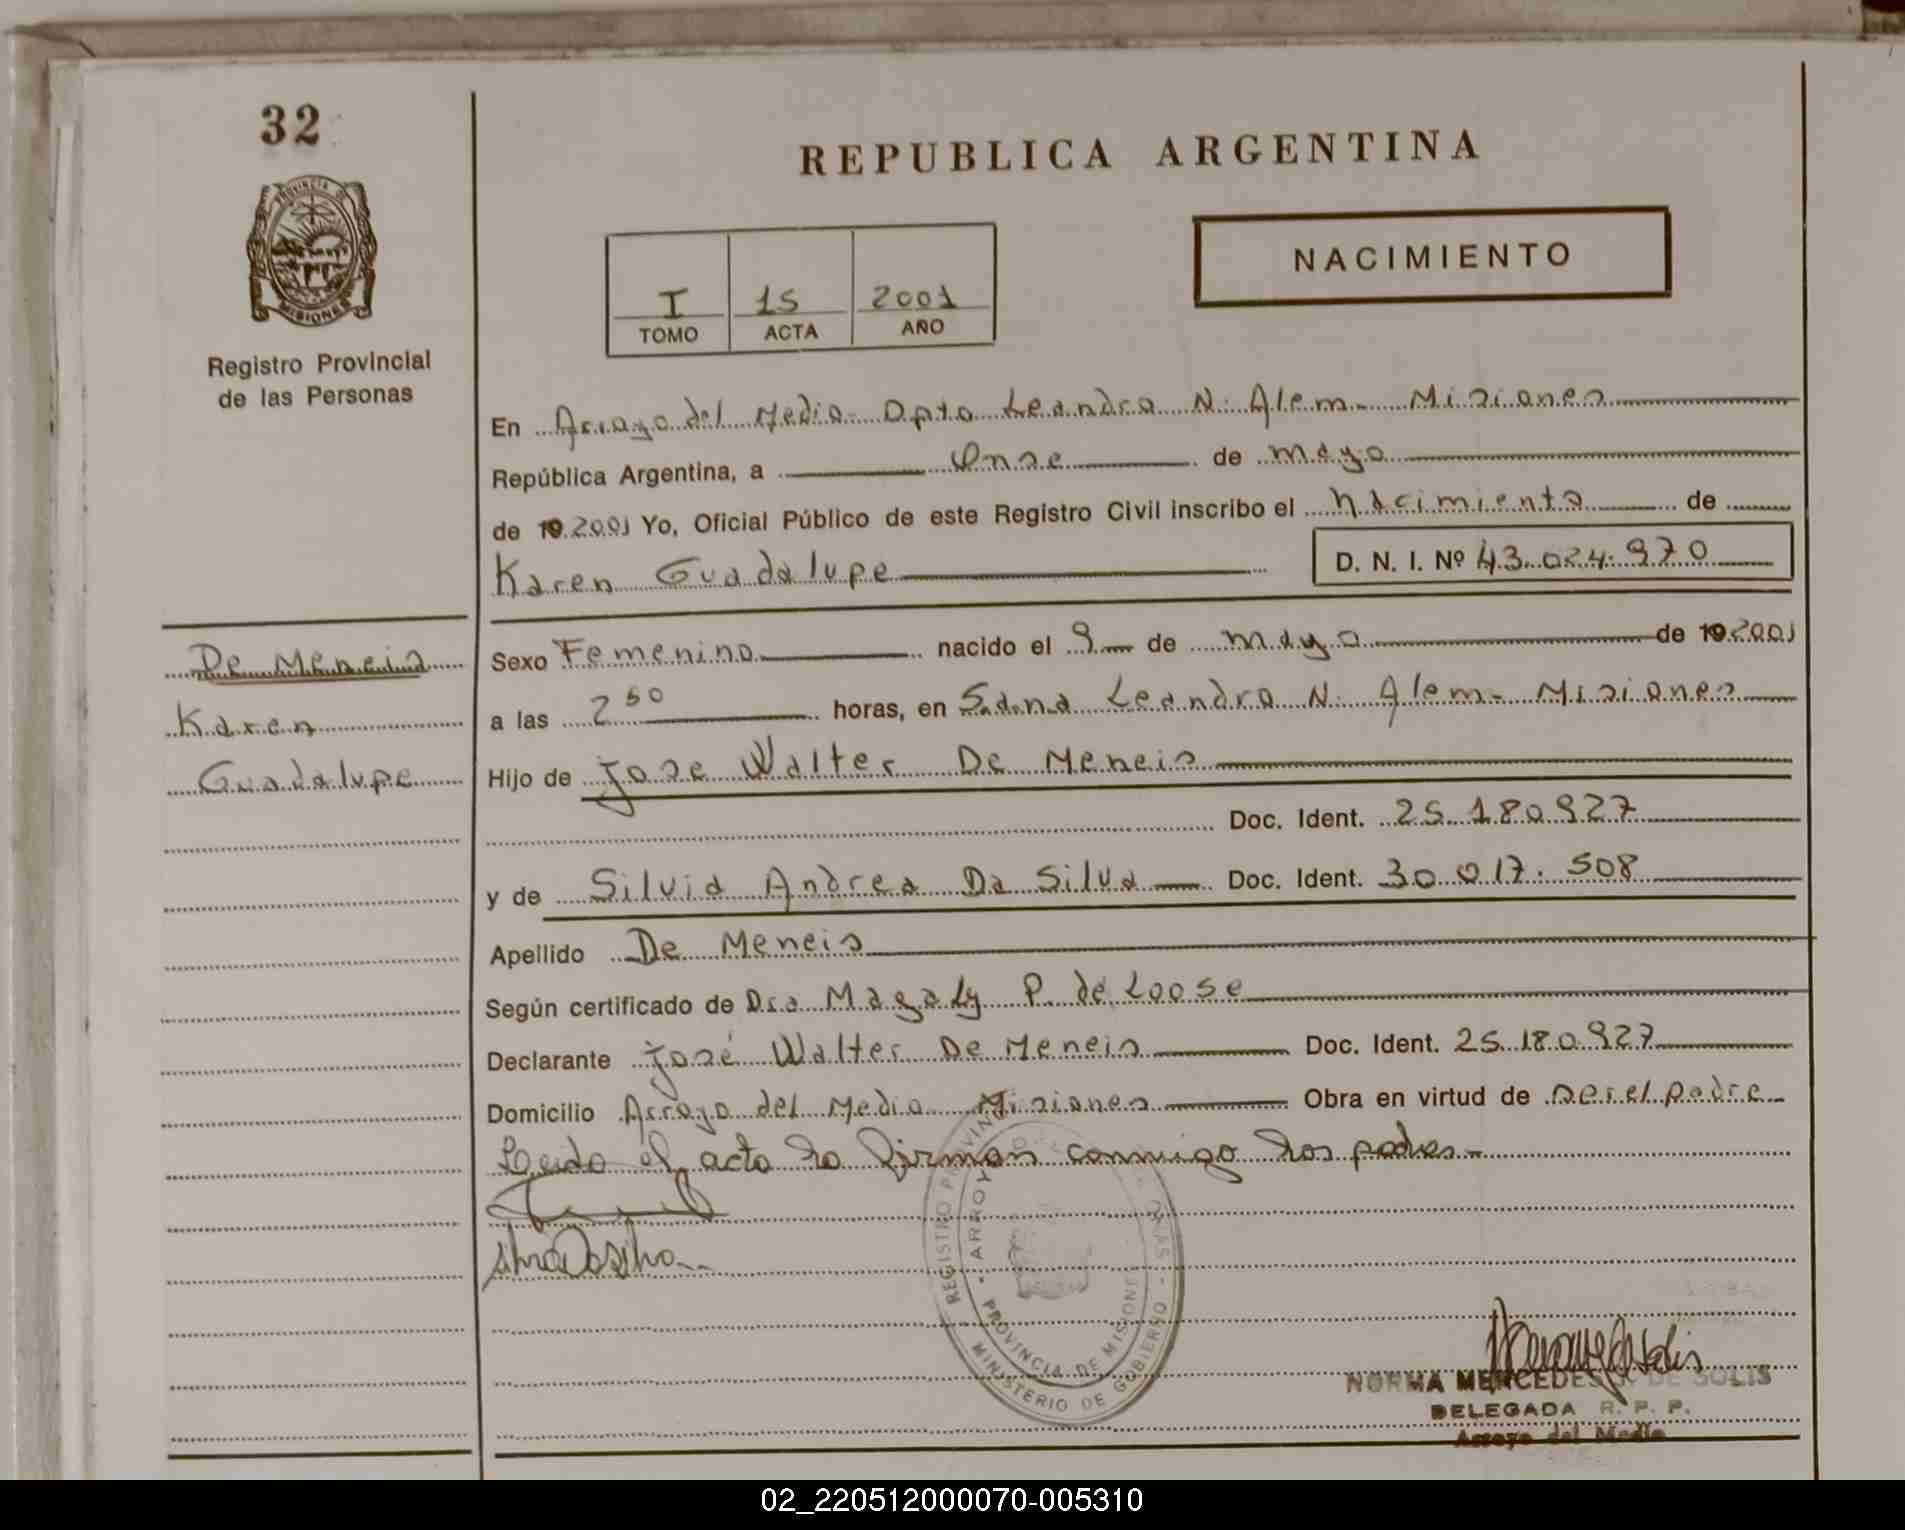 32
REPUBLICA ARGENTINA
PROVINCIA DE
MISIONES
NACIMIENTO
I 15 2001
TOMO ACTA AÑO
Registro Provincial
de las Personas
En Arroyo del Medio Dpto Leandro N. Alem - Misiones
República Argentina, a Onse de mayo
de 19 2001 Yo, Oficial Público de este Registro Civil inscribo el nacimiento de
Karen Guadalupe D. N. I. Nº 43.024.970
De Meneis
Karen
Guadalupe
Sexo Femenino nacido el 9 de mayo de 19 2001
a las 2 50 horas, en Leandro N. Alem - Misiones
Hijo de Jose Walter De Meneis
Doc. Ident. 25.180.927
y de Silvia Andrea Da Silva Doc. Ident. 30.017.508
Apellido De Meneis
Según certificado de Dra Magaly P. de Loose
Declarante José Walter De Meneis Doc. Ident. 25.180.927
Domicilio Arroyo del Medio Misiones Obra en virtud de ser el padre
Leido el acta la firman conmigo los padres -
REGISTRO PROVINCIAL
PROVINCIA DE MISIONES
MINISTERIO DE GOBIERNO
NORMA MERCEDES S. DE SOLIS
DELEGADA R. P. P.
Arroyo del Medio
02_220512000070-005310